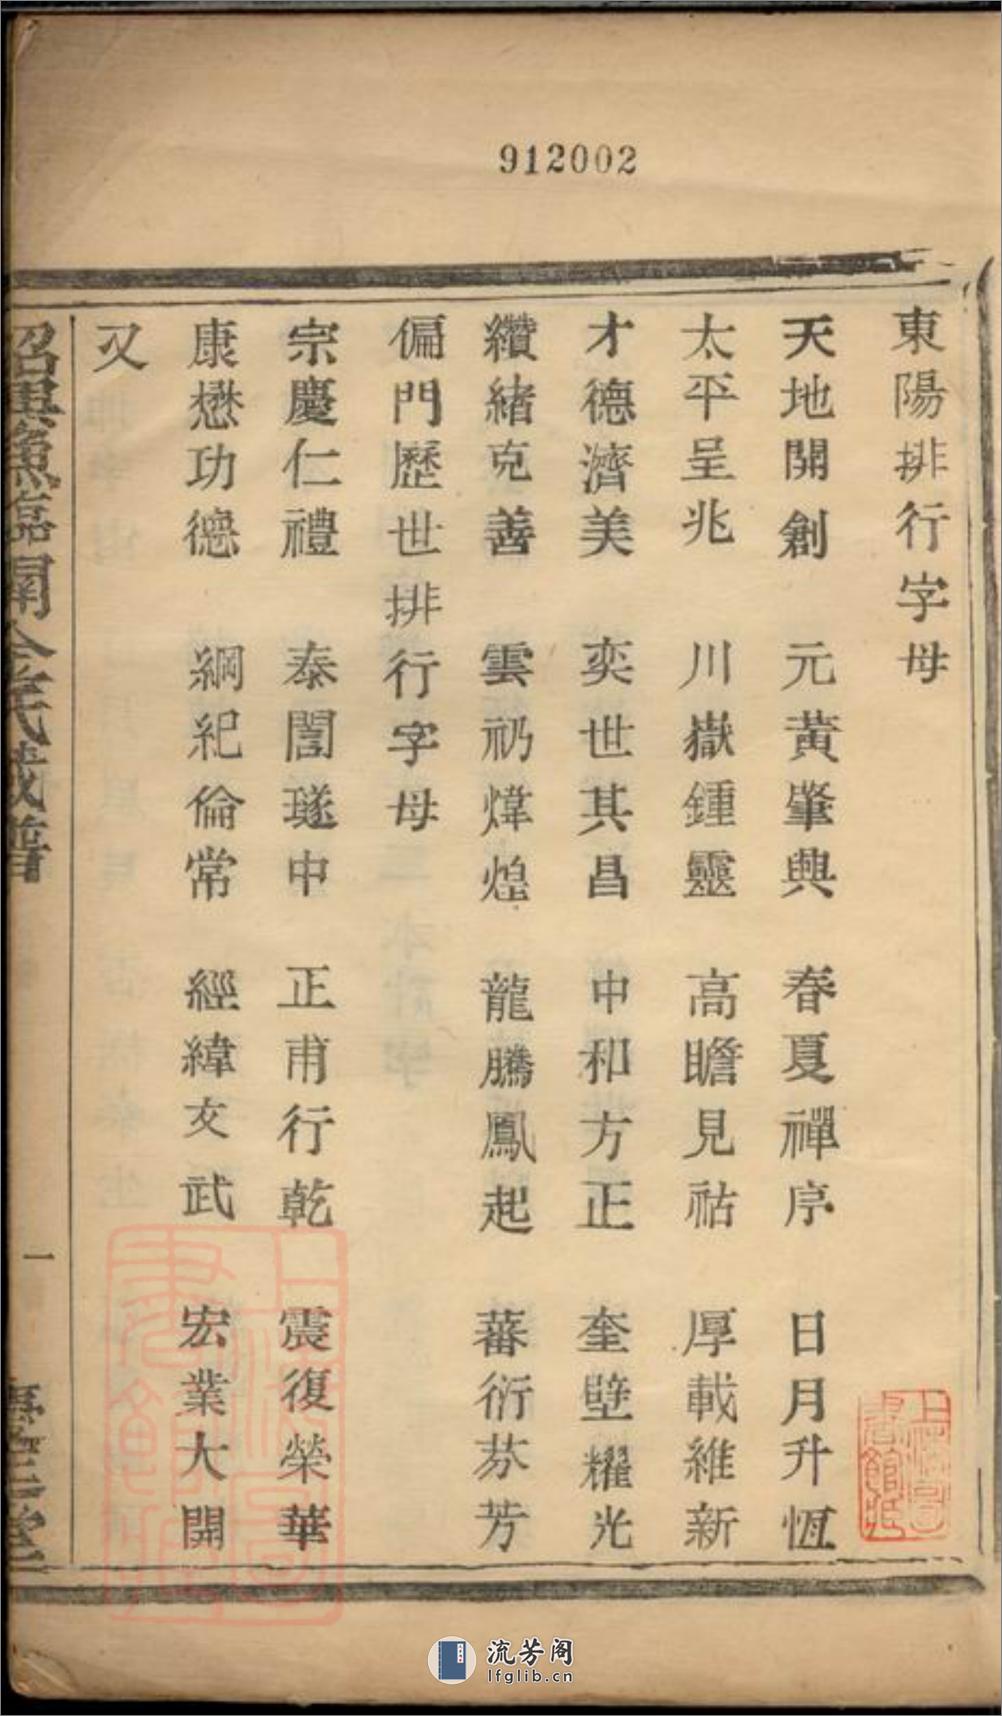 912002
東陽排行字母
天地開創 元黃肇興 春夏禪序 日月升恆
太平呈兆 川嶽鍾靈 高瞻見祜 厚載維新
才德濟美 奕世其昌 中和方正 奎壁耀光
纘緒克善 雲礽煒煌 龍騰鳳起 蕃衍芬芳
偏門歷世排行字母
宗慶仁禮 泰誾璲中 正甫行乾 震復榮華
康懋功德 綱紀倫常 經緯文武 宏業大開
又
一
上海圖書館藏
上海圖書館藏
流芳阁
lfglib.cn